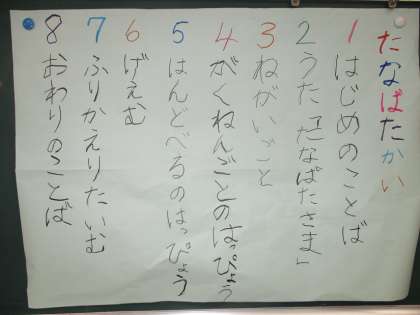 たなばたかい
1 はじめのことば
2 うた「たなばたさま」
3 ねがいごと
4 がくねんごとのはっぴょう
5 はんどべるのはっぴょう
6 げえむ
7 ふりかえりたいむ
8 おわりのことば